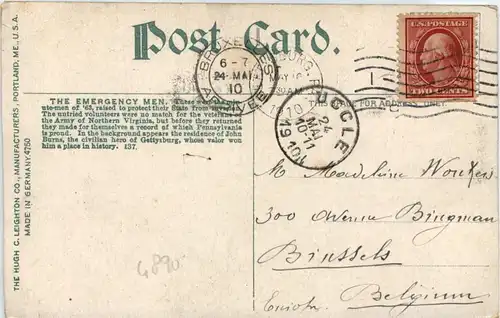 Post Card.
THE HUGH C. LEIGHTON CO., MANUFACTURERS, PORTLAND, ME., U.S.A.
MADE IN GERMANY. 4750
THE EMERGENCY MEN. These were the
ute-men of '63, raised to protect their State from
The untried volunteers were no match for the veterans of
the Army of Northern Virginia, but before they returned
they made for themselves a record of which Pennsylvania
is proud. In the background appears the residence of John
Burns, the civilian hero of Gettysburg, whose valor won
him a place in history. 137.
6-7
24 MAI
10
U.S. POSTAGE
TWO CENTS
1910
SPACE FOR ADDRESS ONLY.
UCCLE
24
MAI
10-11
1910
M. Madeleine
300 Avenue
Brussels
Belgium
6890